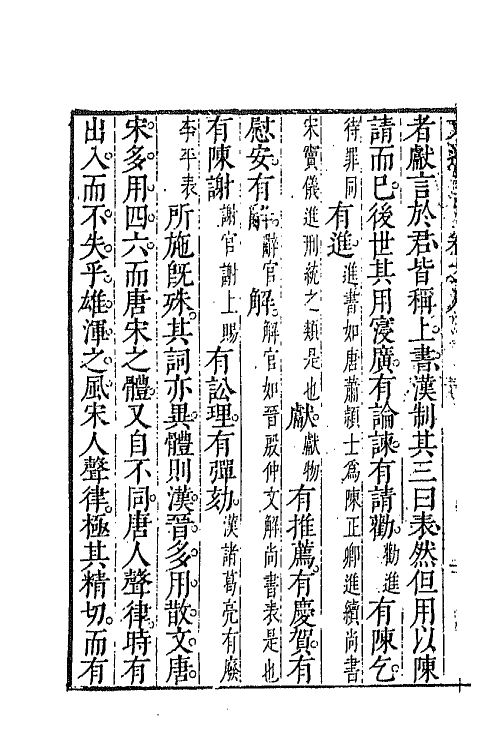 者獻言於君皆稱上書漢制其三曰表然但用以陳
請而已後世其用寖廣有論諫有請勸勸進有陳乞
待罪同有進進書如唐蕭頴士爲陳正卿進續尚書
宋竇儀進刑統之類是也獻獻物有推薦有慶賀有
慰安有辭辭官解解官如晉殷仲文解尚書表是也
有陳謝謝官謝上賜有訟理有彈劾漢諸葛亮有廢
李平表所施旣殊其詞亦異體則漢晉多用散文唐
宋多用四六而唐宋之體又自不同唐人聲律時有
出入而不失乎雄渾之風宋人聲律極其精切而有